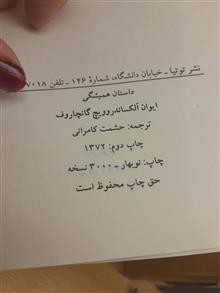 نشر توتیا ـ خیابان دانشگاه، شمارهٔ ۱۴۶ ـ تلفن ۷۰۱۸
داستان همیشگی
ایوان آلکساندروویچ گانچاروف
ترجمه: حشمت کامرانی
چاپ دوم: ۱۳۷۲
چاپ: نوبهار - ۳۰۰۰ نسخه
حق چاپ محفوظ است